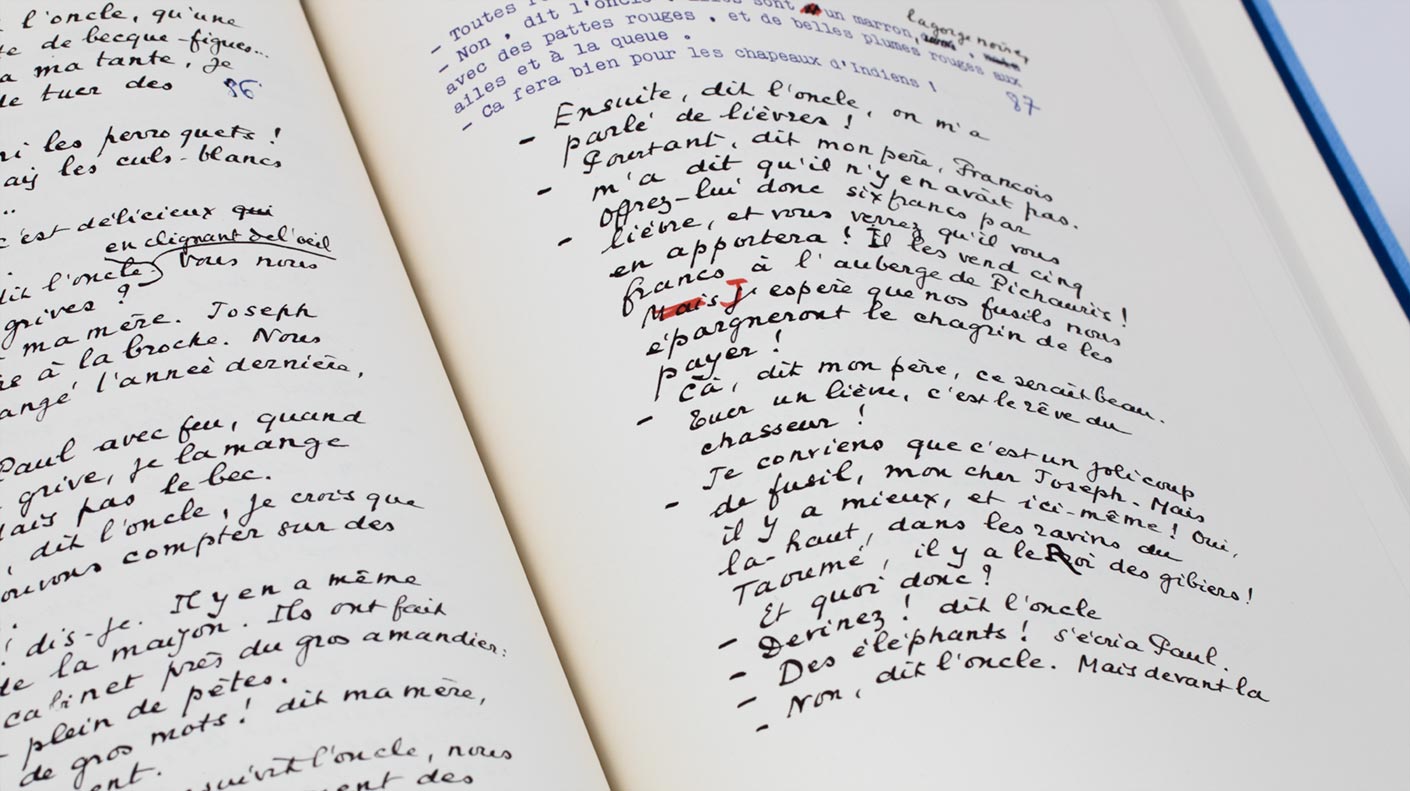 l'oncle, qu'une
de becque-figues..
a ma tante, je
de tuer des
86
ri les perroquets !
les culs-blancs
..
c'est délicieux qui
en clignant de l'oeil
dit l'oncle. Vous nous
grives ?
ma mère. Joseph
à la broche. Nous
angé, l'année dernière,
Paul avec feu, quand
grive, je la mange
pas le bec.
, dit l'oncle, je crois que
ouvons compter sur des
! dis-je. Il y en a même
de la maison. Ils ont fait
cabinet près du gros amandier:
plein de pètes.
de gros mots ! dit ma mère,
ent.
suivit l'oncle, nous
ment des
la gorge noire,
- Toutes
- Non, dit l'oncle. sont un marron,
avec des pattes rouges, et de belles plumes rouges aux
ailes et à la queue.
- Ca fera bien pour les chapeaux d'Indiens !
87
- Ensuite, dit l'oncle, on m'a
parlé de lièvres !
- Pourtant, dit mon père, François
m'a dit qu'il n'y en avait pas.
- Offrez-lui donc six francs par
lièvre, et vous verrez qu'il vous
en apportera ! Il les vend cinq
francs à l'auberge de Pichauris !
Mais J espère que nos fusils nous
épargneront le chagrin de les
payer !
- Cà, dit mon père, ce serait beau.
Tuer un lièvre, c'est le rêve du
chasseur !
- Je conviens que c'est un joli coup
de fusil, mon cher Joseph. Mais
il y a mieux, et ici-même ! Oui,
là-haut, dans les ravins du
Taoumé, il y a le Roi des gibiers !
- Et quoi donc ?
- Devinez ! dit l'oncle
- Des éléphants ! s'écria Paul.
- Non, dit l'oncle. Mais devant la